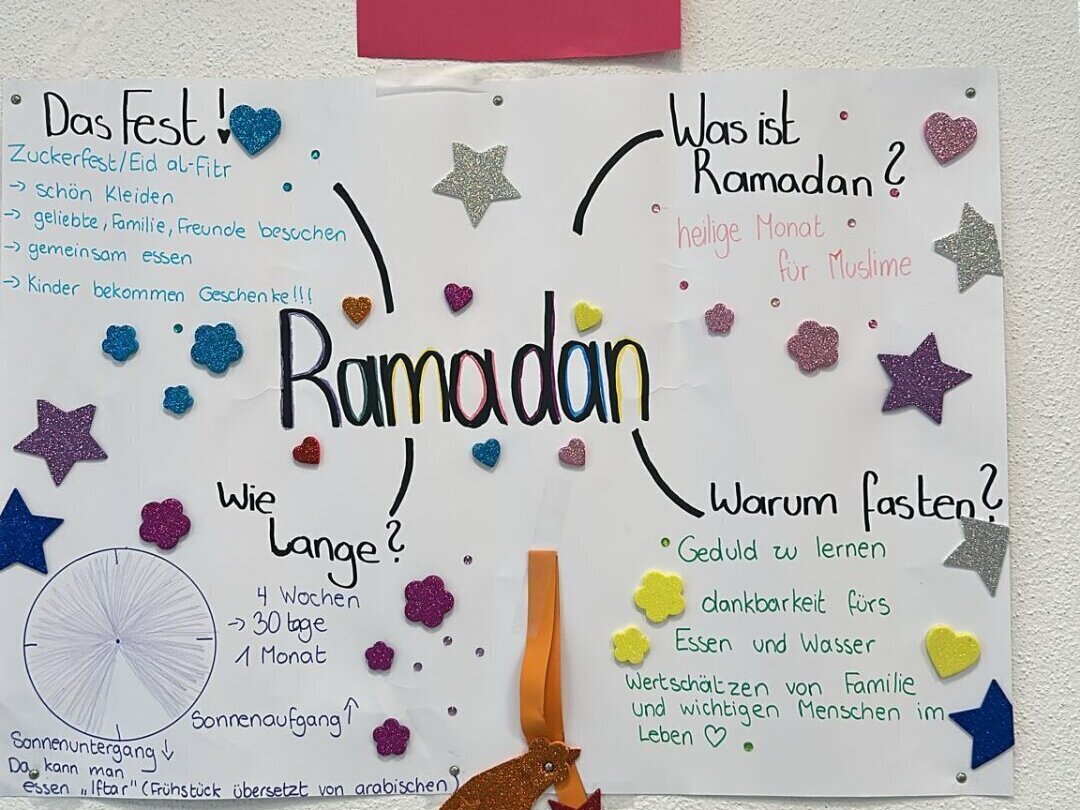 Das Fest!
Zuckerfest/Eid al-Fitr
→ schön Kleiden
→ geliebte, Familie, Freunde besuchen
→ gemeinsam essen
→ Kinder bekommen Geschenke!!!
Was ist
Ramadan?
heilige Monat
für Muslime
Ramadan
Wie
Lange?
4 Wochen
→ 30 tage
1 Monat
Sonnenaufgang ↑
Sonnenuntergang ↓
Da kann man
essen „Iftar" (Frühstück übersetzt von arabischen)
Warum fasten?
Geduld zu lernen
dankbarkeit fürs
Essen und Wasser
Wertschätzen von Familie
und wichtigen Menschen im
Leben ♡